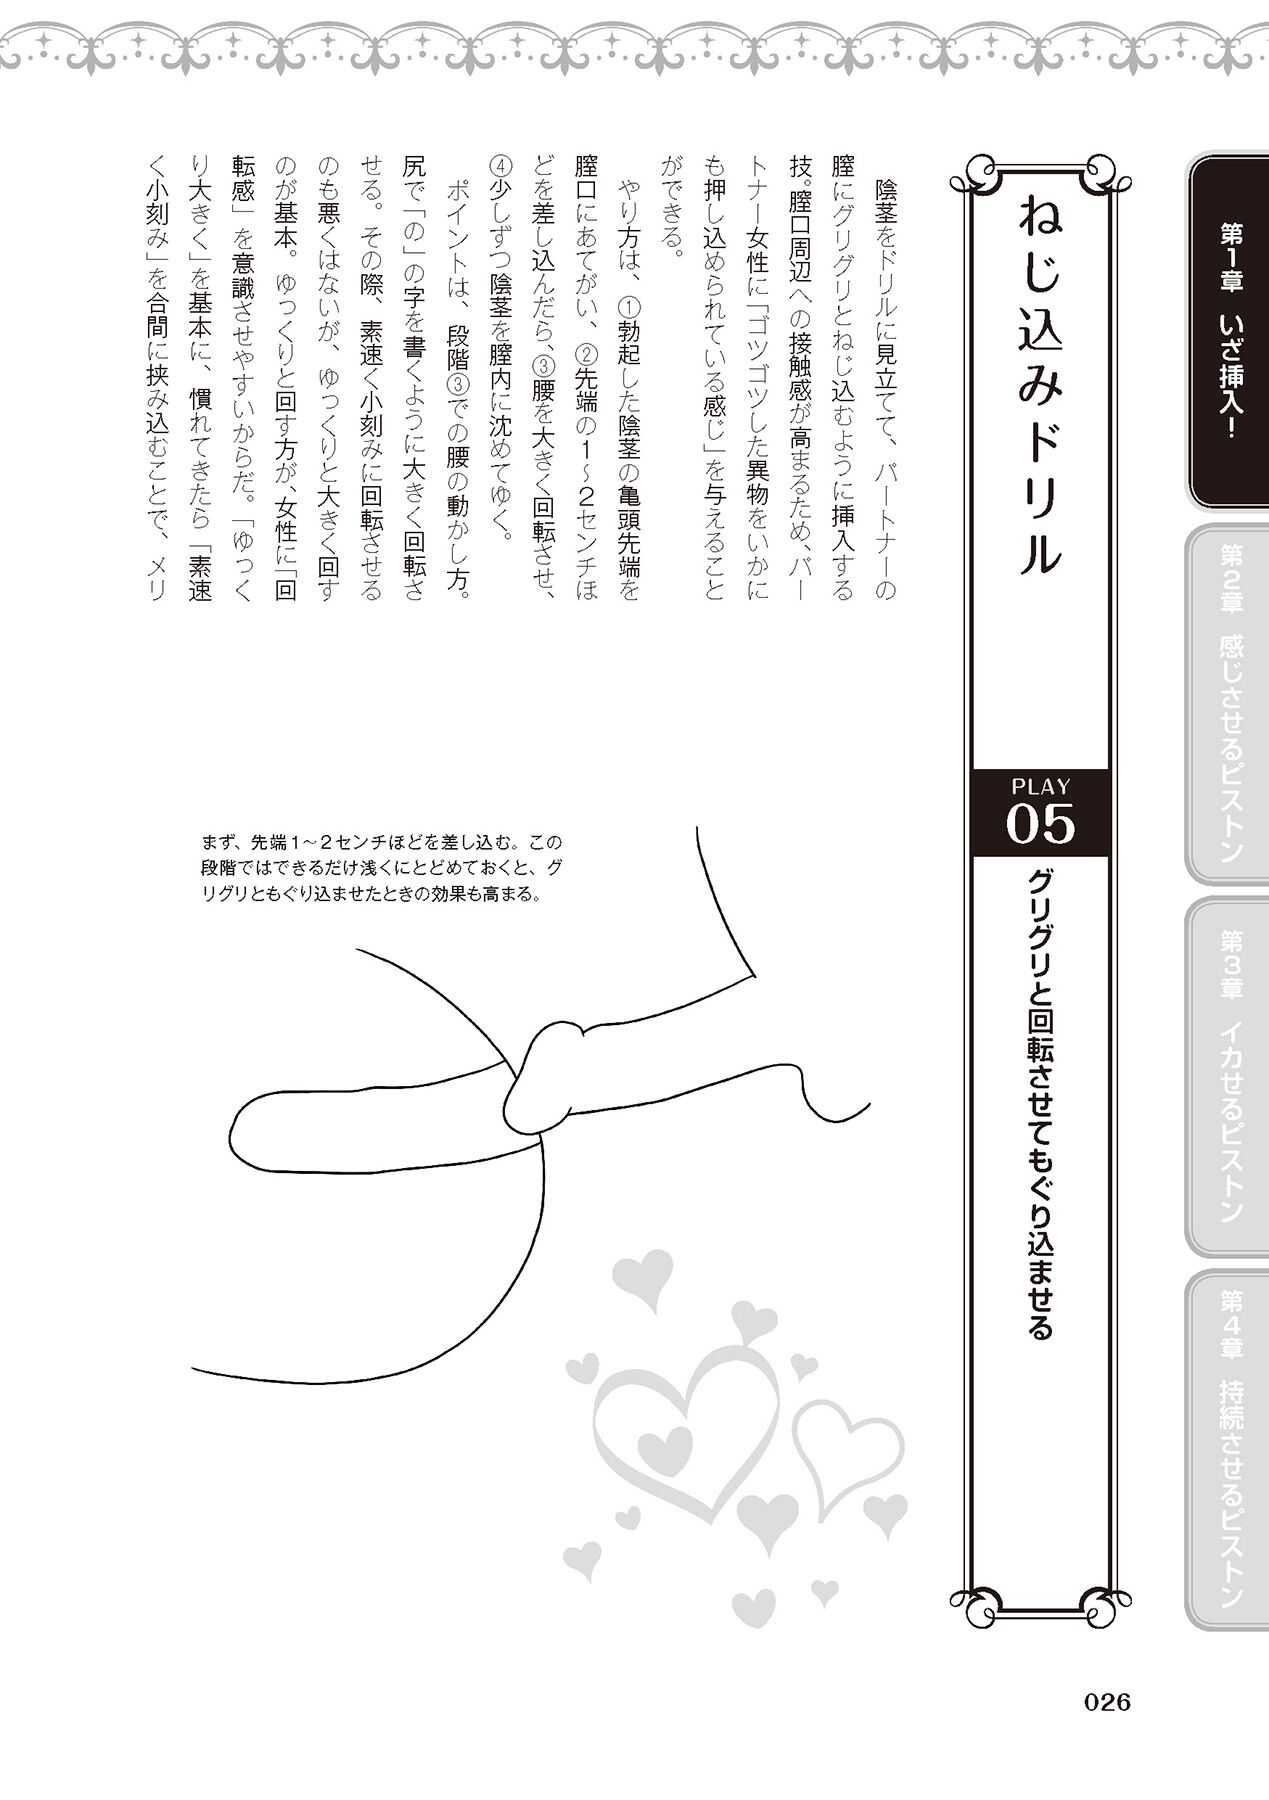 第1章 いざ挿入！
第2章 感じさせるピストン
第3章 イカせるピストン
第4章 持続させるピストン
ねじ込みドリル
PLAY
05
グリグリと回転させてもぐり込ませる
陰茎をドリルに見立てて、パートナーの
膣にグリグリとねじ込むように挿入する
技。膣口周辺への接触感が高まるため、パー
トナー女性に「ゴツゴツした異物をいかに
も押し込められている感じ」を与えること
ができる。
やり方は、①勃起した陰茎の亀頭先端を
膣口にあてがい、②先端の1〜2センチほ
どを差し込んだら、③腰を大きく回転させ、
④少しずつ陰茎を膣内に沈めてゆく。
ポイントは、段階③での腰の動かし方。
尻で「の」の字を書くように大きく回転さ
せる。その際、素速く小刻みに回転させる
のも悪くはないが、ゆっくりと大きく回す
のが基本。ゆっくりと回す方が、女性に「回
転感」を意識させやすいからだ。「ゆっく
り大きく」を基本に、慣れてきたら「素速
く小刻み」を合間に挟み込むことで、メリ
まず、先端1〜2センチほどを差し込む。この
段階ではできるだけ浅くにとどめておくと、グ
リグリともぐり込ませたときの効果も高まる。
026